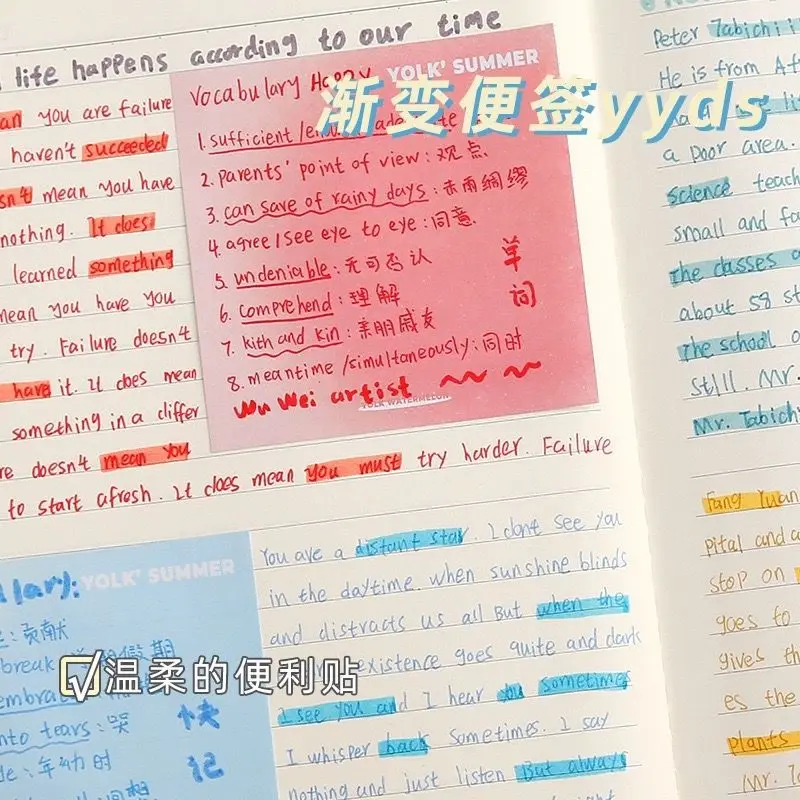 life happens according to our time
you are failure
haven't succeeded
mean you have
nothing. It does
learned something
mean you have you
try. Failure doesn't
have it. It does mean
something in a differ
doesn't mean you
to start afresh. It does mean you must try harder. Failure
YOLK' SUMMER
Vocabulary Happy
渐变便签yyds
1. sufficient /
2. parents' point of view: 观点
3. can save of rainy days: 未雨绸缪
4. agree / see eye to eye: 同意
5. undeniable: 无可否认
6. comprehend: 理解
7. kith and kin: 亲朋戚友
8. meantime / simultaneously: 同时
单
词
Wu Wei artist
YOLK WATERMELON
YOLK' SUMMER
: 贡献
break
温柔的便利贴
embra
nto tears: 哭
: 年幼时
快
记
You are a distant star. I dont see you
in the daytime. when sunshine blinds
and distracts us all But when the
existence goes quite and dark
I see you and I hear you sometimes
I whisper back sometimes. I say
nothing and just listen But always
Peter Tabichi i
He is from Af
a poor area.
science teach
small and fa
the classes a
about 58 st
the school o
still. Mr.
Mr. Tabichi
Fang Yuan
pital and a
stop on
goes to
gives th
es the
plants
Mr. Ta